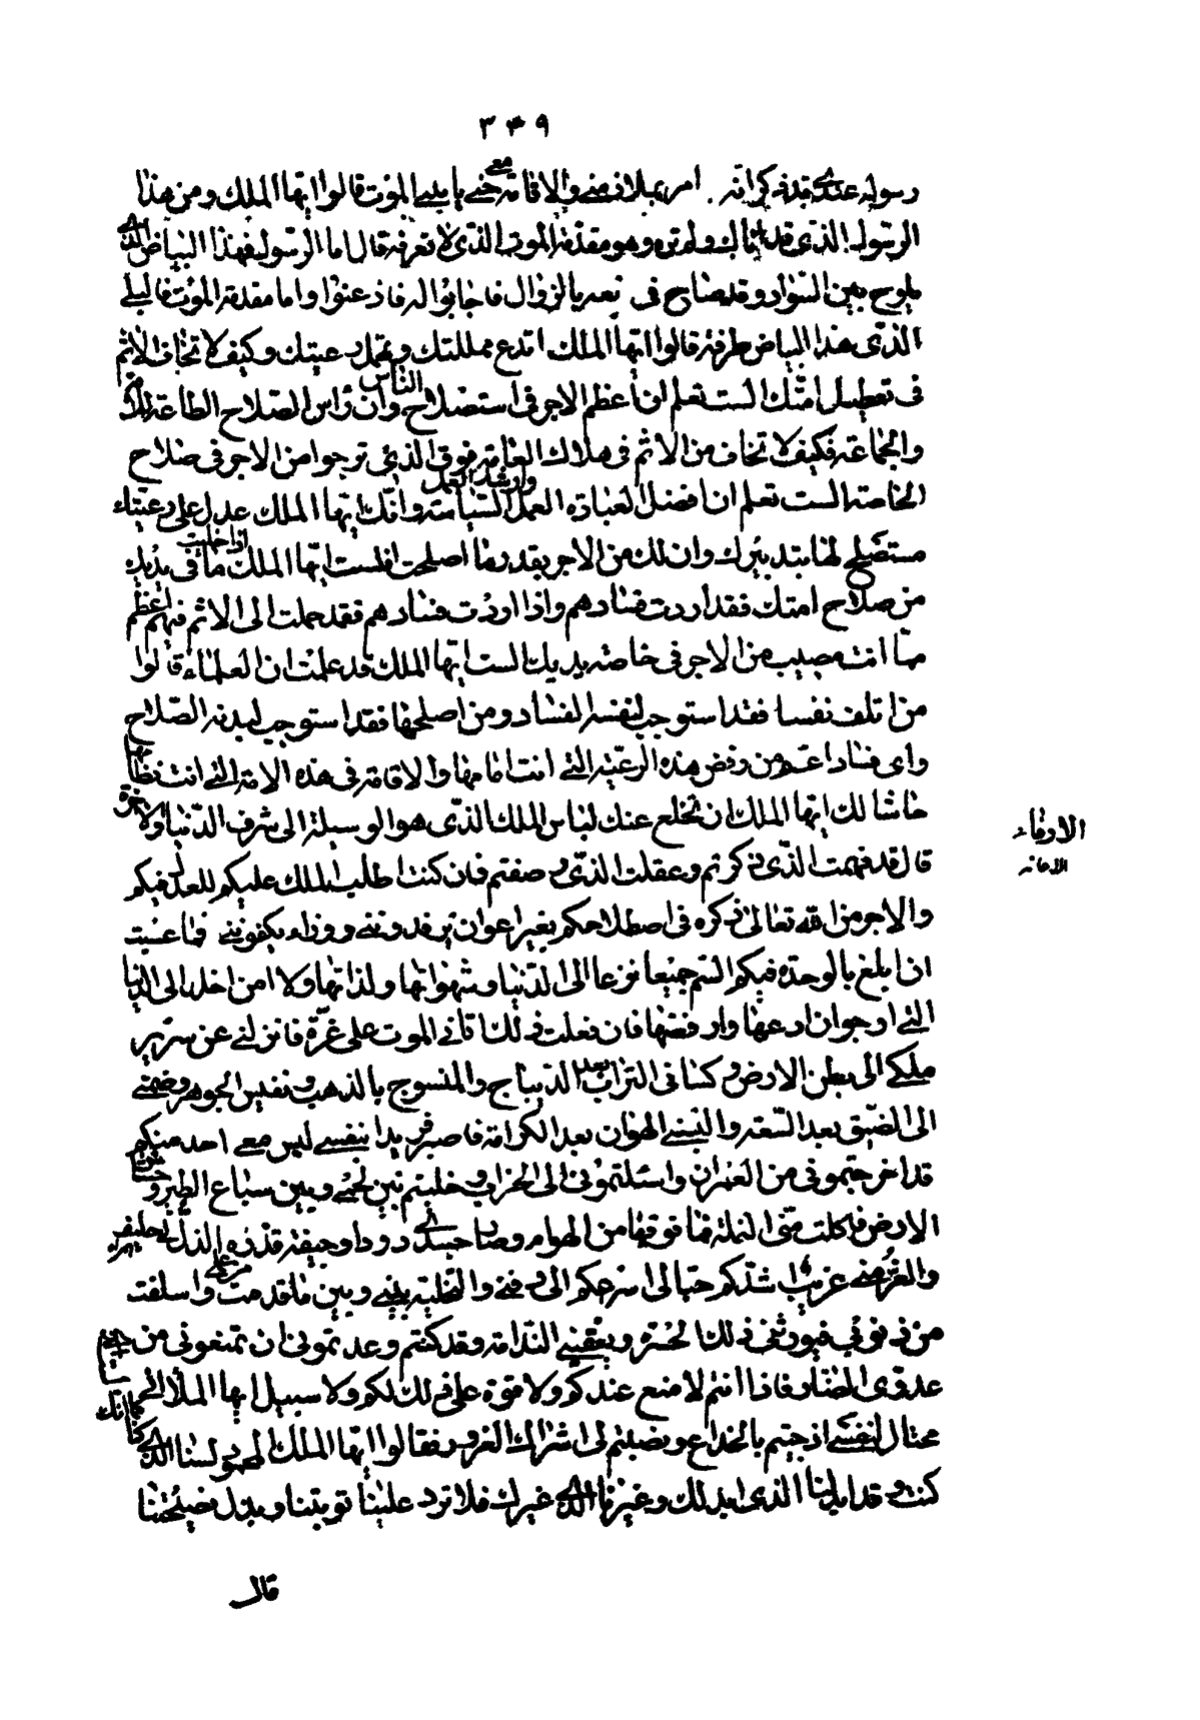 ٣٤٩
رسوله عندي قد ذكر انه امر بملازمتي والاقامة معي حتى ياتيني الموت قالوا ايها الملك ومن هذا
الرسول الذي قد اتاك ولم نره وهو مقدمة الموت الذي لا نعرفه قال اما الرسول فهذا البياض الذي
يلوح بين السواد وقد صاح في جميعه بالزوال فاجابوا له فاذعنوا واما مقدمة الموت فالبلى
الذي هذا البياض طرفة قالوا ايها الملك اتدع مملكتك وتهمل رعيتك وكيف لا تخاف الاثم
في تعطيل امتك الست تعلم ان اعظم الاجر في استصلاح الناس وان راس الصلاح الطاعة للامة
والجماعة فكيف لا تخاف من الاثم في هلاك العامة فوق الذي ترجوا من الاجر في صلاح
الخاصة الست تعلم ان افضل العبادة العمل وان اشد العمل السياسة وانك ايها الملك عدل على رعيتك
مستصلح لها بتدبيرك وان لك من الاجر بقدر ما اصلحت افلست ايها الملك اذا خليت ما في يديك
من صلاح امتك فقد اردت فسادهم واذا اردت فسادهم فقد حملت الى الاثم فيهم اعظم
مما انت مصيب من الاجر في خاصة يديك الست ايها الملك قد علمت ان العلماء قالوا
من اتلف نفسا فقد استوجب لنفسه الفساد ومن اصلحها فقد استوجب لبدنه الصلاح
واي فساد اعظم من رفض هذه الرعية التي انت امامها والاقامة في هذه الامة التي انت نظامها
حاشا لك ايها الملك ان تخلع عنك لباس الملك الذي هو الوسيلة الى شرف الدنيا والاخرة
قال قد فهمت الذي ذكرتم وعقلت الذي وصفتم فان كنت اطلب الملك عليكم للعدل فيكم
والاجر من الله تعالى ذكره في اصطلاحكم بغير اعوان يرفدونني ووزراء يكفونني فما عسيت
ان ابلغ بالوحدة فيكم الستم جميعا نزعا الى الدنيا وشهواتها ولذاتها ولا امن اخلد الى الدنيا
التي ارجو ان ادعها وارفضها فان فعلت ذلك اتاني الموت على غرة فانزلني عن سرير
ملكي الى بطن الارض وكساني التراب بعد الديباج والمنسوج بالذهب ونفيس الجوهر وضمني
الى الضيق بعد السعة والبسني الهوان بعد الكرامة فاصير فريدا بنفسي ليس معي احد منكم
قد اخرجتموني من العمران واسلمتموني الى الخراب وخليتم بين لحمي وبين سباع الطير وحشرات
الارض فاكلت مني النملة فما فوقها من الهوام وصار جسدي دودا وجيفة قذرة الذل لي حليف
والعز مني غريب اشدكم حبا لي اسرعكم الى دفني والتخلية بيني وبين ما قدمت من عملي واسلفت
من ذنوبي فيورثني ذلك الحسرة ويعقبني الندامة وقد كنتم وعدتموني ان تمنعوني من
عدوي الضار فاذا انتم لا منع عندكم ولا قوة على ذلك لكم ولا سبيل ايها الملأ اني
محتال لنفسي اذ جئتم بالخداع ونصبتم لي اشراك الغرور فقالوا ايها الملك المحمود لسنا الذي كنا كما انك
كنت وقد ابدلنا الذي ابدلك وغيرنا الذي غيرك فلا ترد علينا توبتنا وبذل نصيحتنا
قال